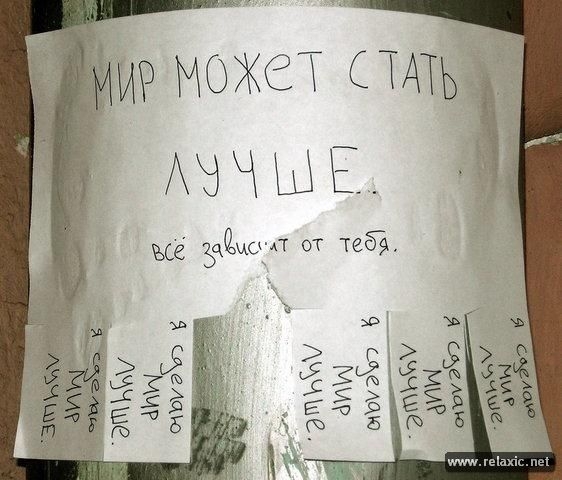 МИР МОЖЕТ СТАТЬ
ЛУЧШЕ..
всё зависит от тебя.
я сделаю
МИР
ЛУЧШЕ.
я сделаю
МИР
ЛУЧШЕ.
я сделаю
МИР
ЛУЧШЕ.
я сделаю
МИР
ЛУЧШЕ.
я сделаю
МИР
ЛУЧШЕ.
www.relaxic.net